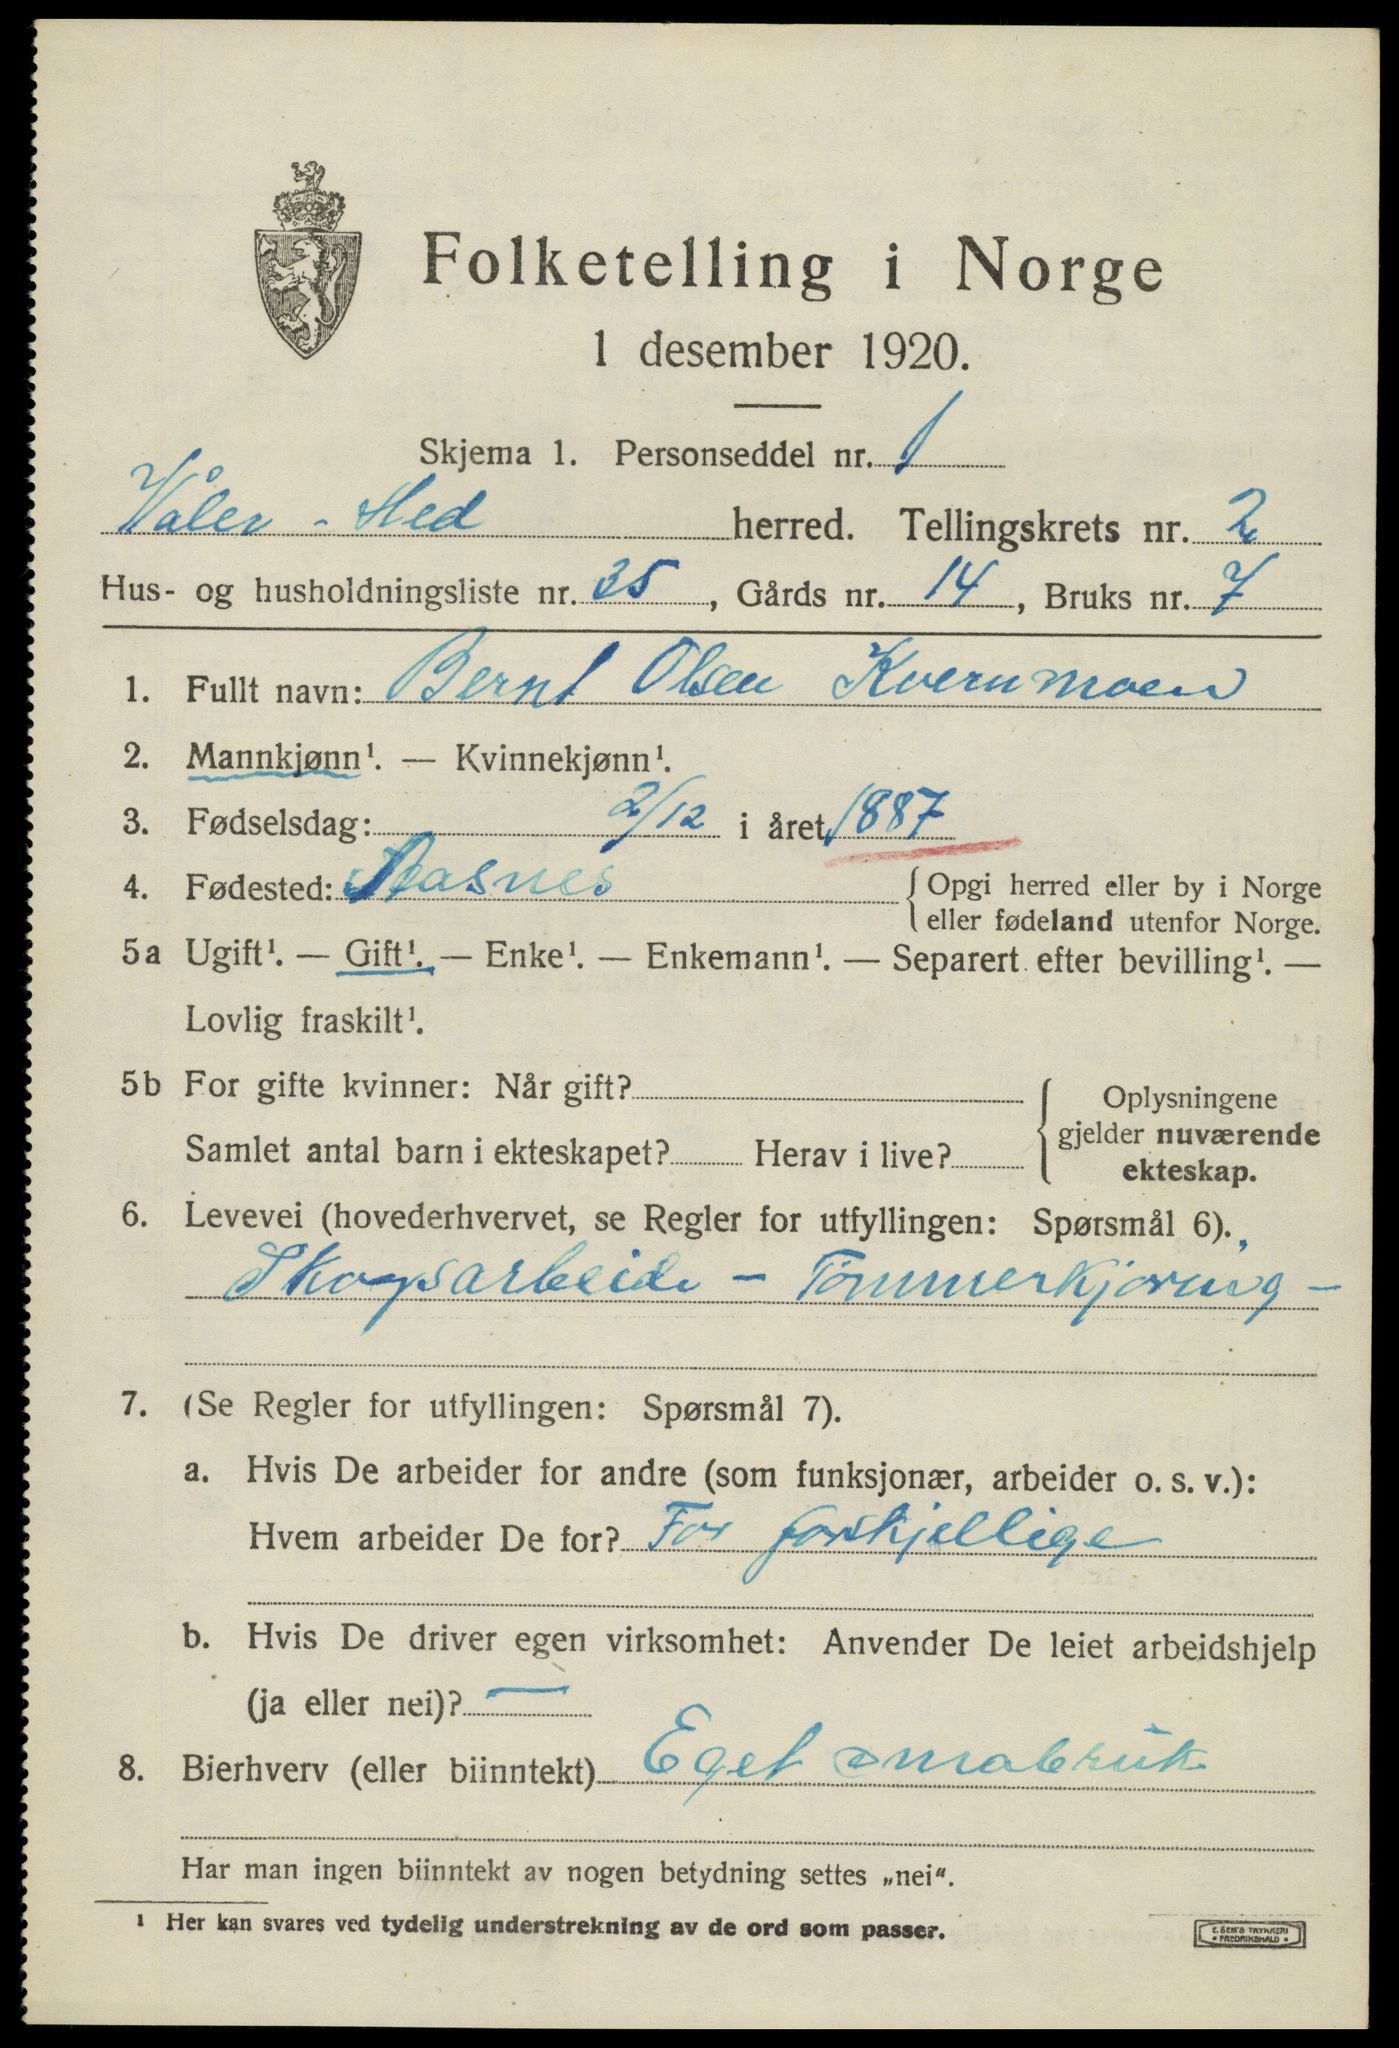 Folketelling i Norge
1 desember 1920.
Skjema 1. Personseddel nr. 1
Våler - Hed herred. Tellingskrets nr. 2
Hus- og husholdningsliste nr. 35, Gårds nr. 14, Bruks nr. 7
1. Fullt navn: Bernt Olsen Kvernmoen
2. Mannkjønn¹. — Kvinnekjønn¹.
3. Fødselsdag: 2/12 i året 1887
4. Fødested: Aasnes { Opgi herred eller by i Norge
eller fødeland utenfor Norge.
5a Ugift¹. — Gift¹. — Enke¹. — Enkemann¹. — Separert efter bevilling¹. —
Lovlig fraskilt¹.
5b For gifte kvinner: Når gift?
Samlet antal barn i ekteskapet? Herav i live?
{ Oplysningene
gjelder nuværende
ekteskap.
6. Levevei (hovederhvervet, se Regler for utfyllingen: Spørsmål 6).
Skogsarbeide - Tømmerkjøring -
7. (Se Regler for utfyllingen: Spørsmål 7).
a. Hvis De arbeider for andre (som funksjonær, arbeider o. s. v.):
Hvem arbeider De for? For forskjellige
b. Hvis De driver egen virksomhet: Anvender De leiet arbeidshjelp
(ja eller nei)? —
8. Bierhverv (eller biinntekt) Eget smabruk
Har man ingen biinntekt av nogen betydning settes „nei“.
¹ Her kan svares ved tydelig understrekning av de ord som passer.
E. SEM'S TRYKKERI
• FREDRIKSHALD •